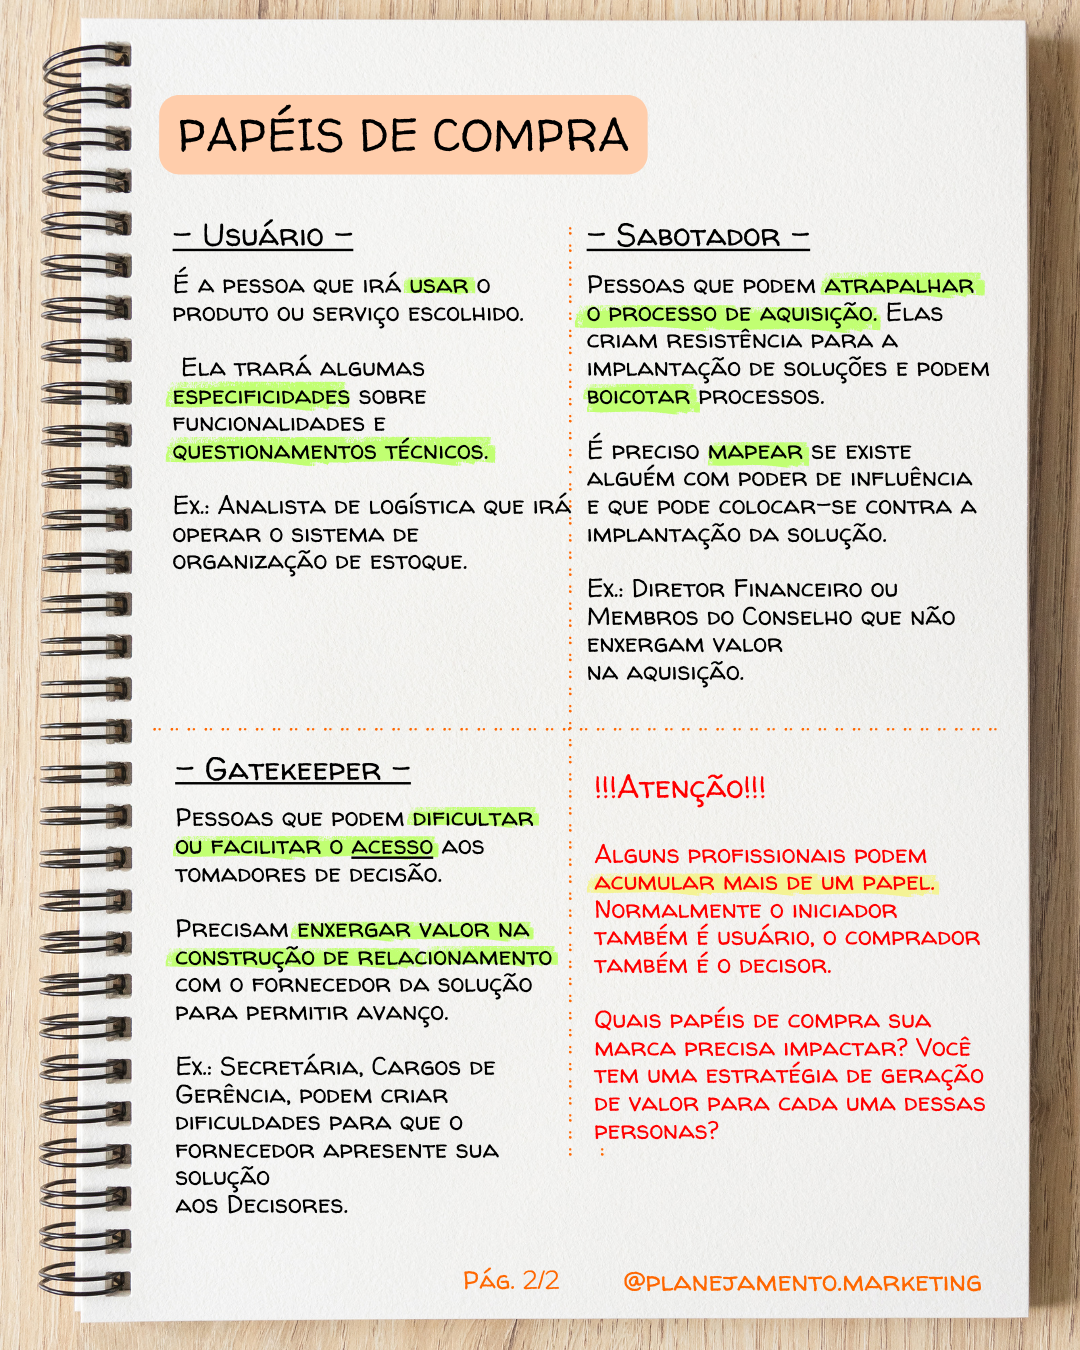 PAPÉIS DE COMPRA
- Usuário -
É a pessoa que irá usar o
produto ou serviço escolhido.
Ela trará algumas
especificidades sobre
funcionalidades e
questionamentos técnicos.
Ex.: Analista de logística que irá
operar o sistema de
organização de estoque.
- Sabotador -
Pessoas que podem atrapalhar
o processo de aquisição. Elas
criam resistência para a
implantação de soluções e podem
boicotar processos.
É preciso mapear se existe
alguém com poder de influência
e que pode colocar-se contra a
implantação da solução.
Ex.: Diretor Financeiro ou
Membros do Conselho que não
enxergam valor
na aquisição.
- Gatekeeper -
Pessoas que podem dificultar
ou facilitar o acesso aos
tomadores de decisão.
Precisam enxergar valor na
construção de relacionamento
com o fornecedor da solução
para permitir avanço.
Ex.: Secretária, Cargos de
Gerência, podem criar
dificuldades para que o
fornecedor apresente sua
solução
aos Decisores.
!!!Atenção!!!
Alguns profissionais podem
acumular mais de um papel.
Normalmente o iniciador
também é usuário, o comprador
também é o decisor.
Quais papéis de compra sua
marca precisa impactar? Você
tem uma estratégia de geração
de valor para cada uma dessas
personas?
Pág. 2/2
@planejamento.marketing